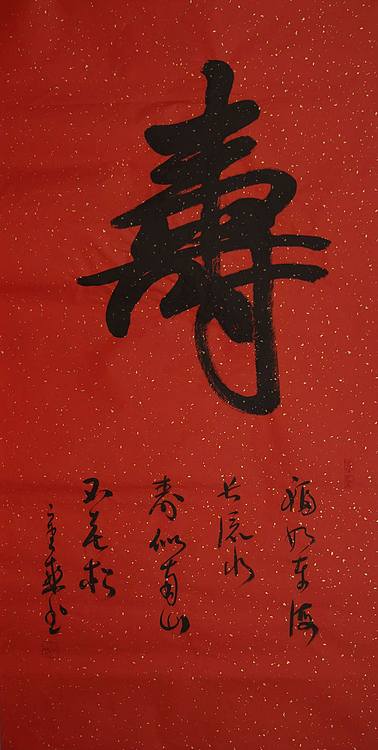 寿
福如东海
长流水
寿似南山
不老松
书